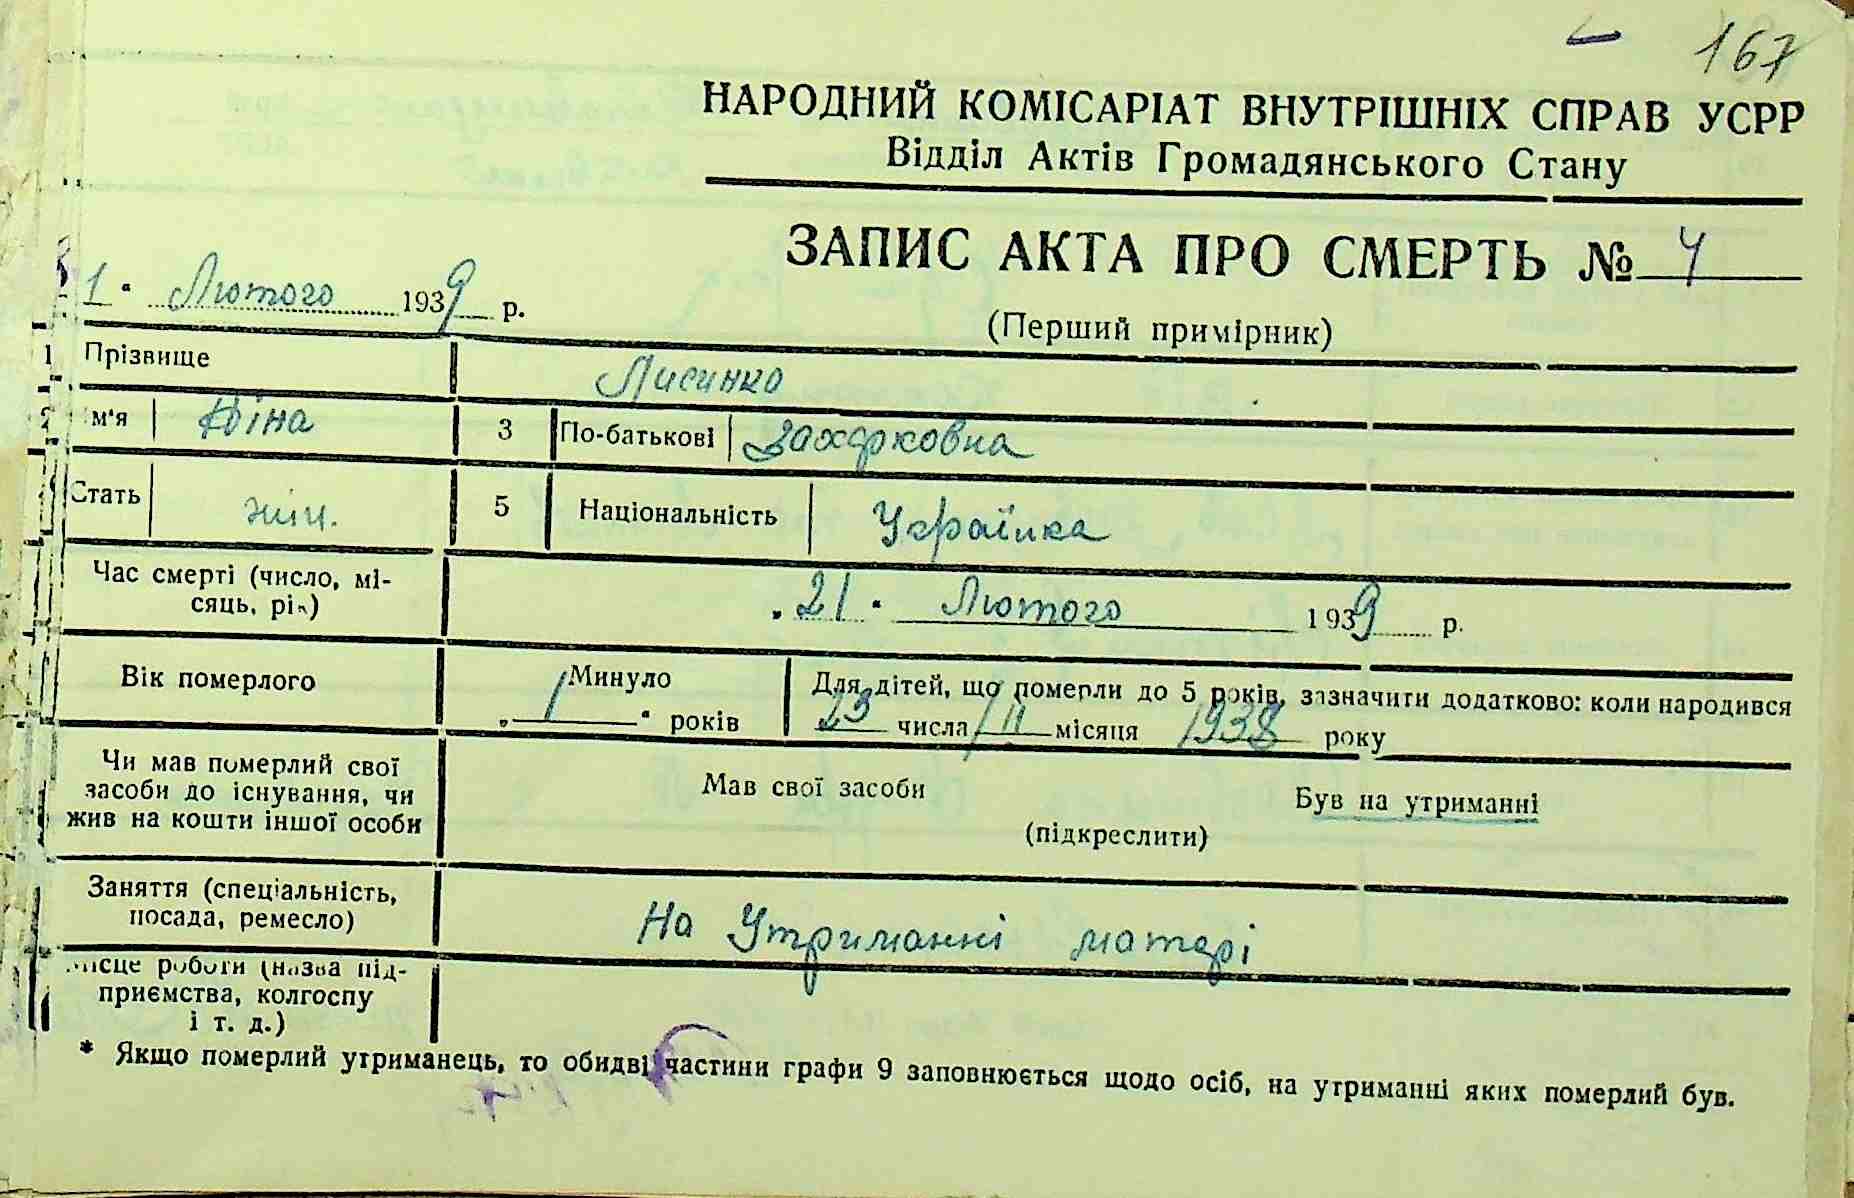 167
НАРОДНИЙ КОМІСАРІАТ ВНУТРІШНІХ СПРАВ УСРР
Відділ Актів Громадянського Стану
ЗАПИС АКТА ПРО СМЕРТЬ № 4
1 " Лютого 1939 р.
(Перший примірник)
1 Прізвище Лисинко
2 м'я Ніна 3 По-батькові Захарковна
Стать жін. 5 Національність Українка
Час смерті (число, мі-
сяць, рік) „ 21 " Лютого 1939 р.
Вік померлого Минуло Для дітей, що померли до 5 років, зазначити додатково: коли народився
„ 1 " років 23 числа II місяця 1938 року
Чи мав померлий свої
засоби до існування, чи
жив на кошти іншої особи
Мав свої засоби Був на утриманні
(підкреслити)
Заняття (спеціальність,
посада, ремесло) На Утриманні матері
Місце роботи (назва під-
приємства, колгоспу
і т. д.)
* Якщо померлий утриманець, то обидві частини графи 9 заповнюється щодо осіб, на утриманні яких померлий був.